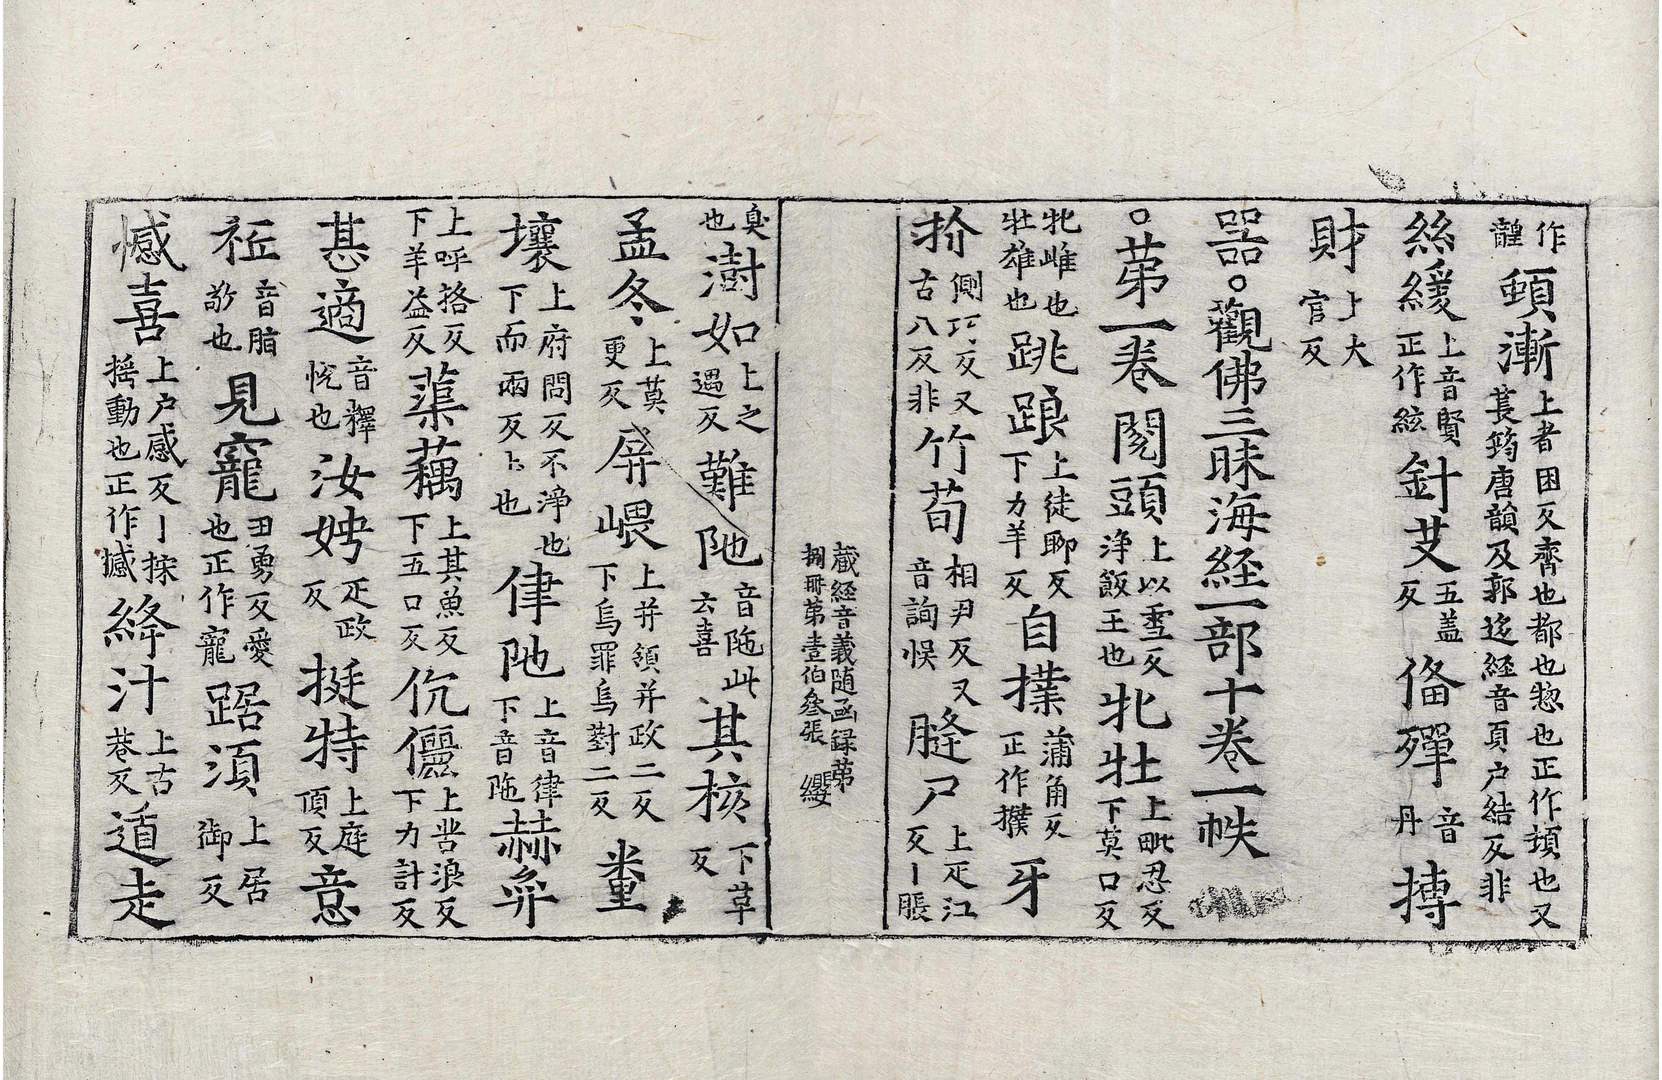 作𩕳漸上者困反齊也都也惣也正作頓也又
䪥萇筠唐韻及郭迻経音頁户結反非
絲緩上音賢正作絃針艾五盖反俻殫音丹摶
財上大官反
器○觀佛三昧海経一部十卷一帙
○第一卷閱頭上以雪反浄飯王也牝牡上毗忍反下莫口反
牝雌也牡雄也跳踉上徒聊反下力羊反自撲蒲角反正作撲牙
扴側八反又古八反非竹荀相尹反又音詢悮胮尸上疋江反丨脹
蔵経音義随函録第
捌冊第壹伯叄張 纓
臭也澍如上之遇反難阤音陁此云喜其核下草反
孟冬上莫更反屏㟪上并領并政二反下烏罪烏對二反糞
壤上府問反不浄也下而兩反上也律阤上音律下音陁赫弈
上呼挌反下羊益反蕖藕上其魚反下五口反伉儷上苦浪反下力計反
甚適音釋悦也汝娉疋政反挺特上庭頂反意
祗音脂敬也見寵丑勇反愛也正作寵踞湏上居御反
憾喜上户感反丨揺動也正作撼絳汁上古巷反遒走